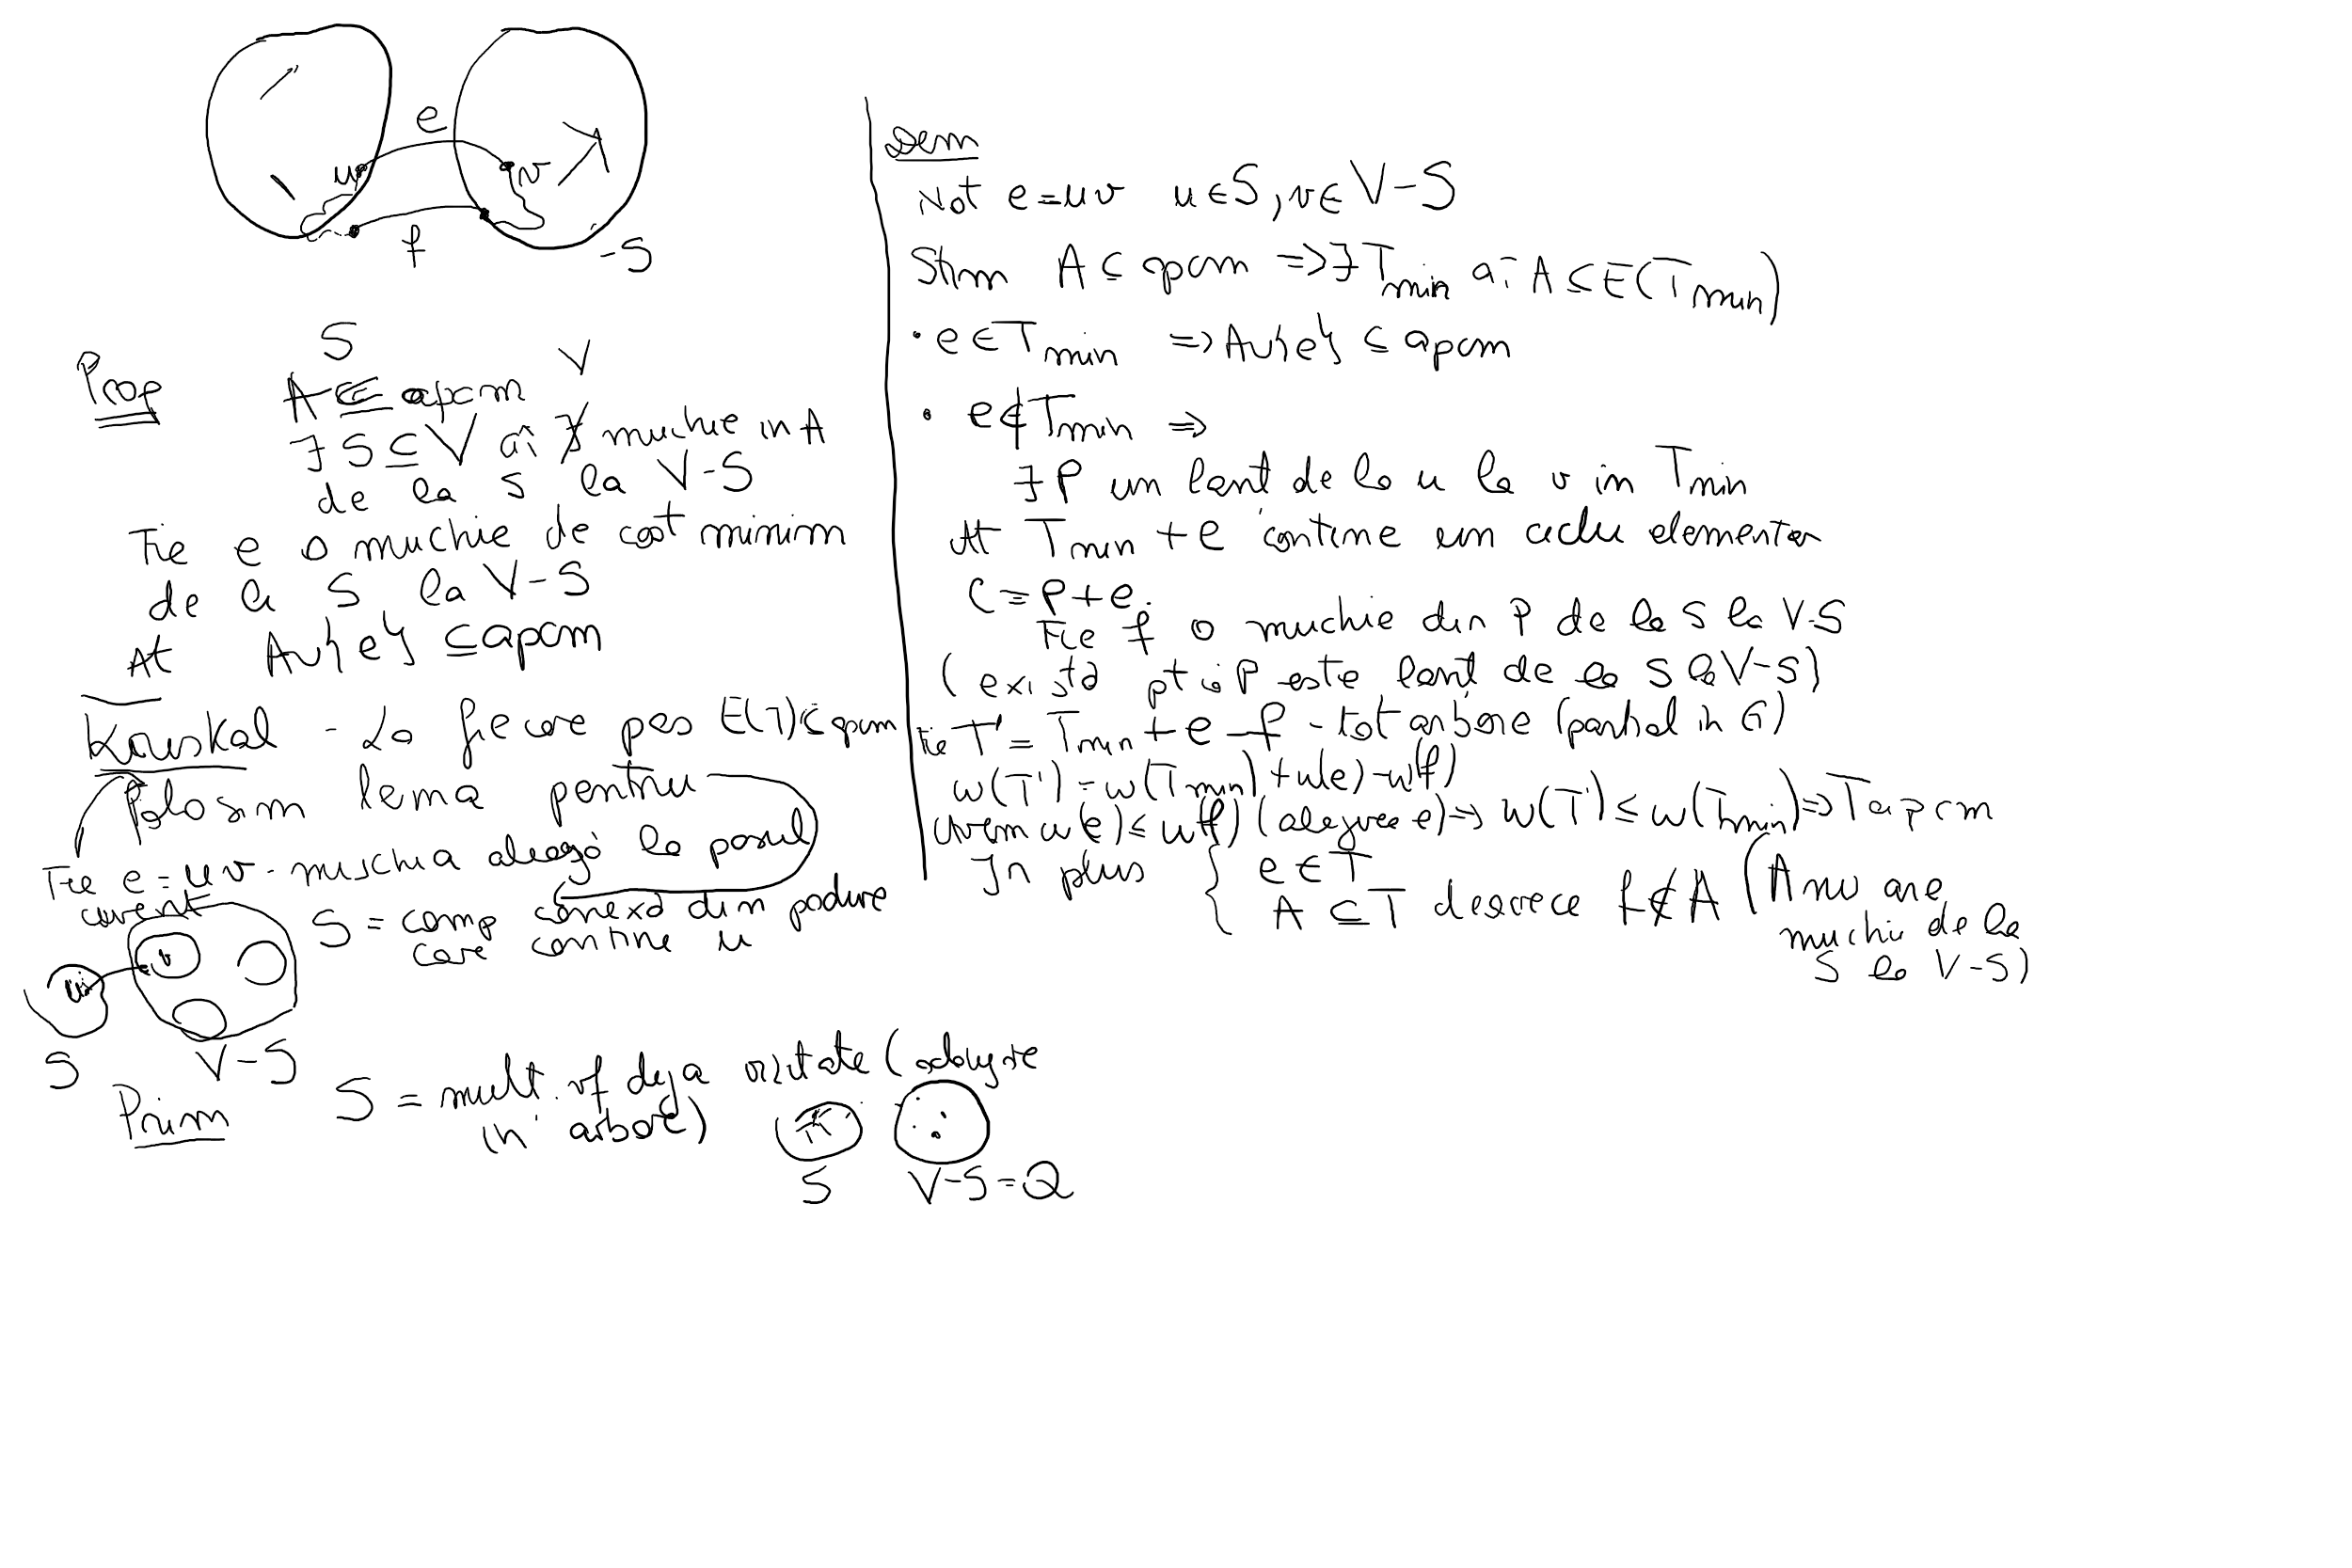 e
u
v
f
-S
S
V
Prop
A ⊆ apcm
∃ S ⊆ V aî ∄ muchie in A
de la S la V-S
Fie e o muchie de cost minim
de la S la V-S
At A∪{e} ⊆ apcm
Kruskal - La fiecare pas E(T) ⊆ apcm
Folosim lema pentru
Fie e = uv - muchia aleasă la pasul
curent
S = comp conexă din pădure
care contine u
u
v
S
V-S
Prim
S = mult. vf deja vizitate (adaugate
in arbore)
S
V-S = Q
Dem
Not e = uv u ∈ S, v ∈ V-S
Stim A ⊆ apcm => ∃ Tmin aî A ⊆ E(Tmin)
• e ∈ Tmin => A∪{e} ⊆ apcm
• e ∉ Tmin =>
∃ P un lant de la u la v in Tmin
At Tmin + e contine un ciclu elementar
C = P + e.
Fie f o muchie din P de la S la V-S
(există pt că P este lant de la S la V-S)
Fie T' = Tmin + e - f - tot arbore (partial in G)
w(T') = w(Tmin) + w(e) - w(f)
Avem w(e) ≤ w(f) (alegerea e) => w(T') ≤ w(Tmin) => T apcm
In plus { e ∈ T
A ⊆ T deoarece f ∉ A (A nu are
muchii de la
S la V-S)